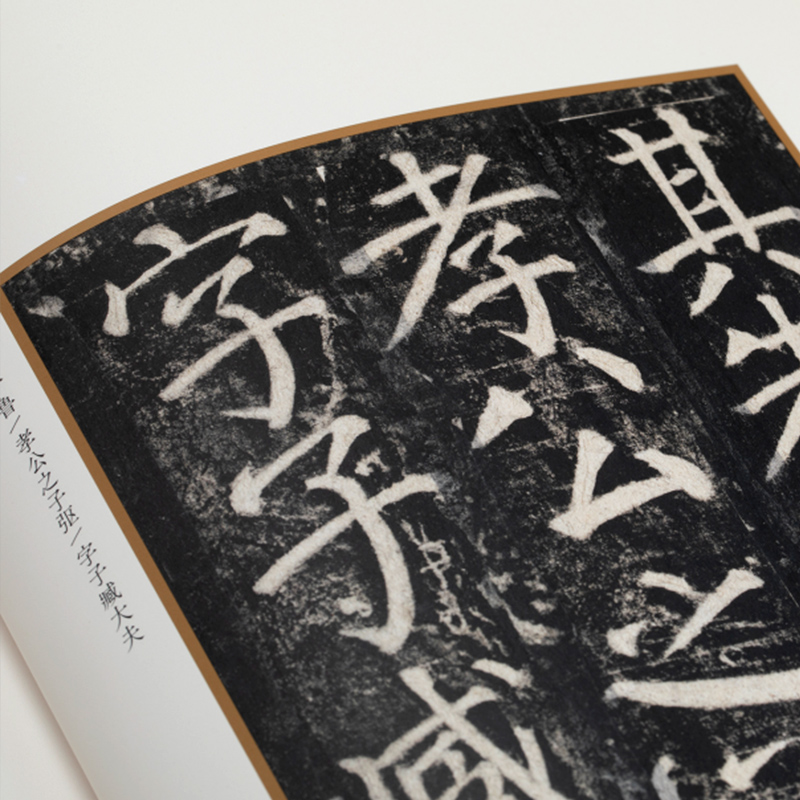 其先
孝公之
字子臧
鲁/孝公之子𫸩/字子臧大夫